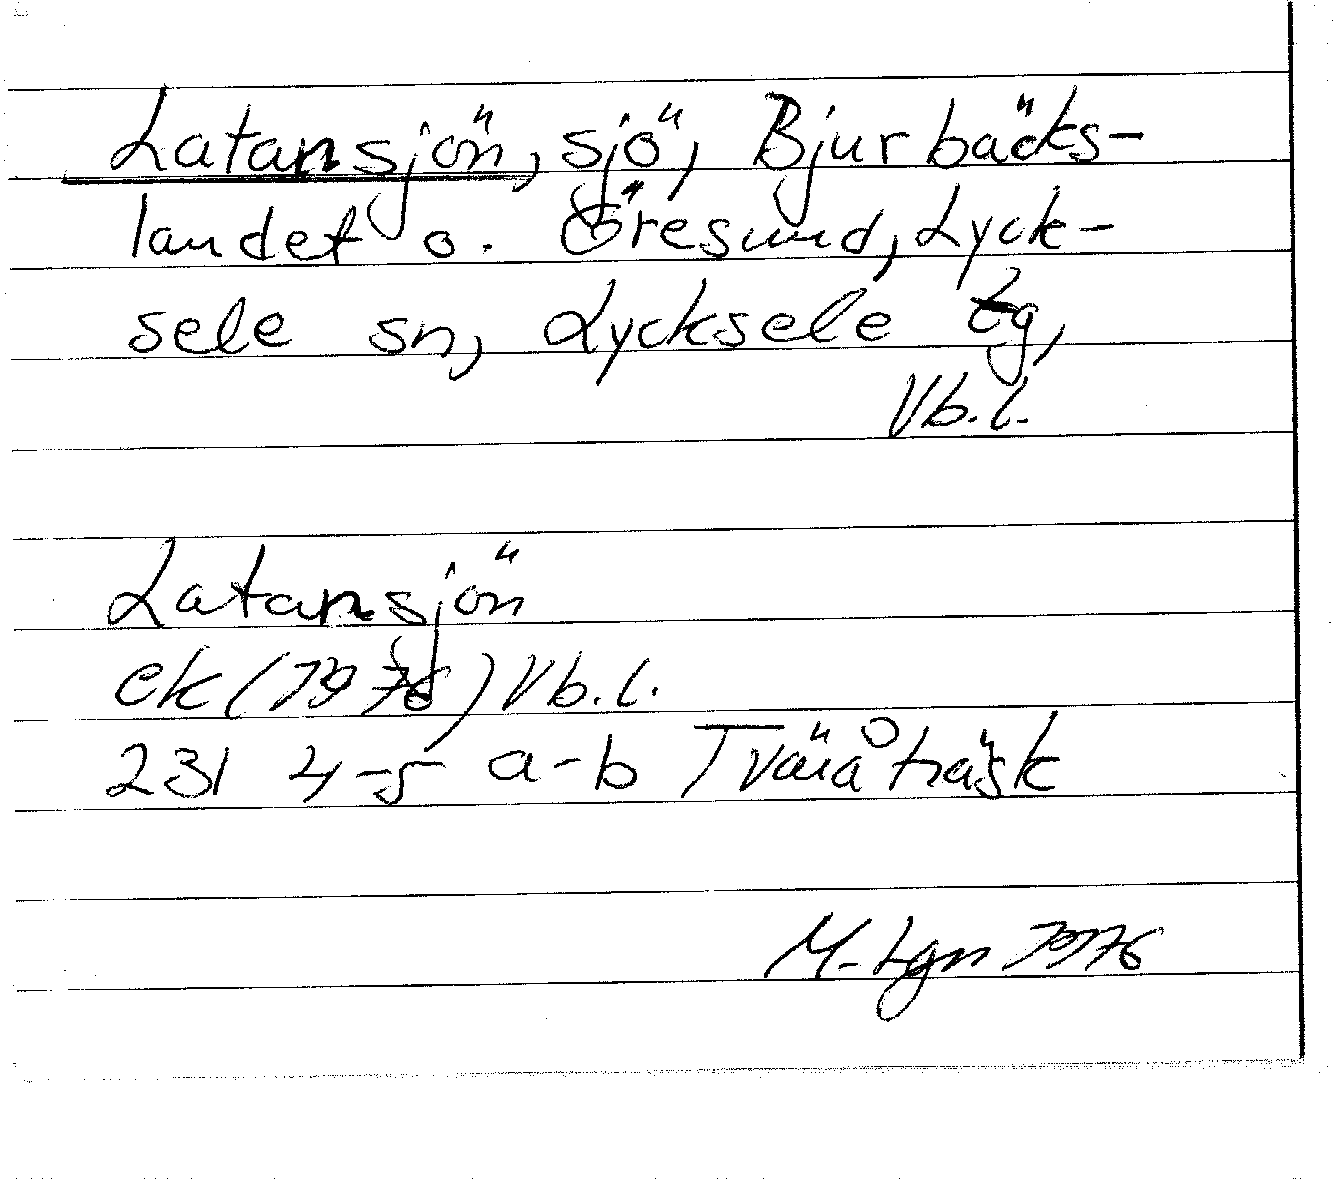 Latansjön, sjö, Bjurbäcks-
landet o. Öresund, Lyck-
sele sn, Lycksele tg,
Vb.l.
Latansjön
ek (1976) Vb.l.
231 4-5 a-b Tväråträsk
M-Lgn 1976